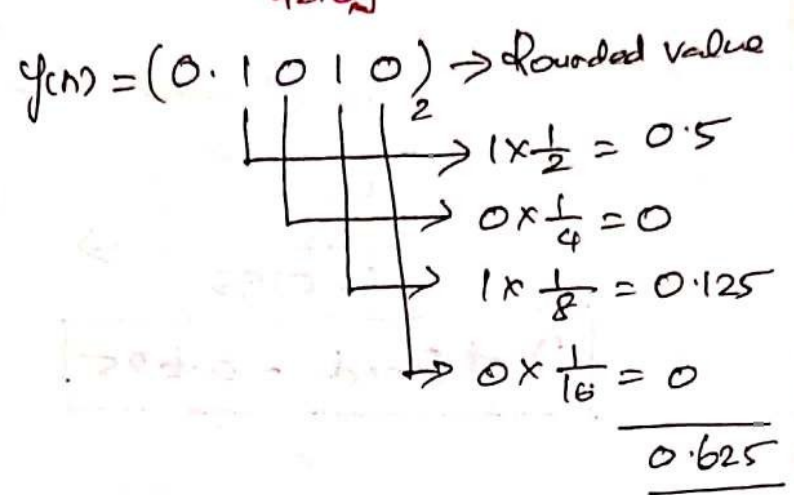 y(n) = (0.1010)₂ → Rounded value
→ 1 × 1/2 = 0.5
→ 0 × 1/4 = 0
→ 1 × 1/8 = 0.125
→ 0 × 1/16 = 0
0.625